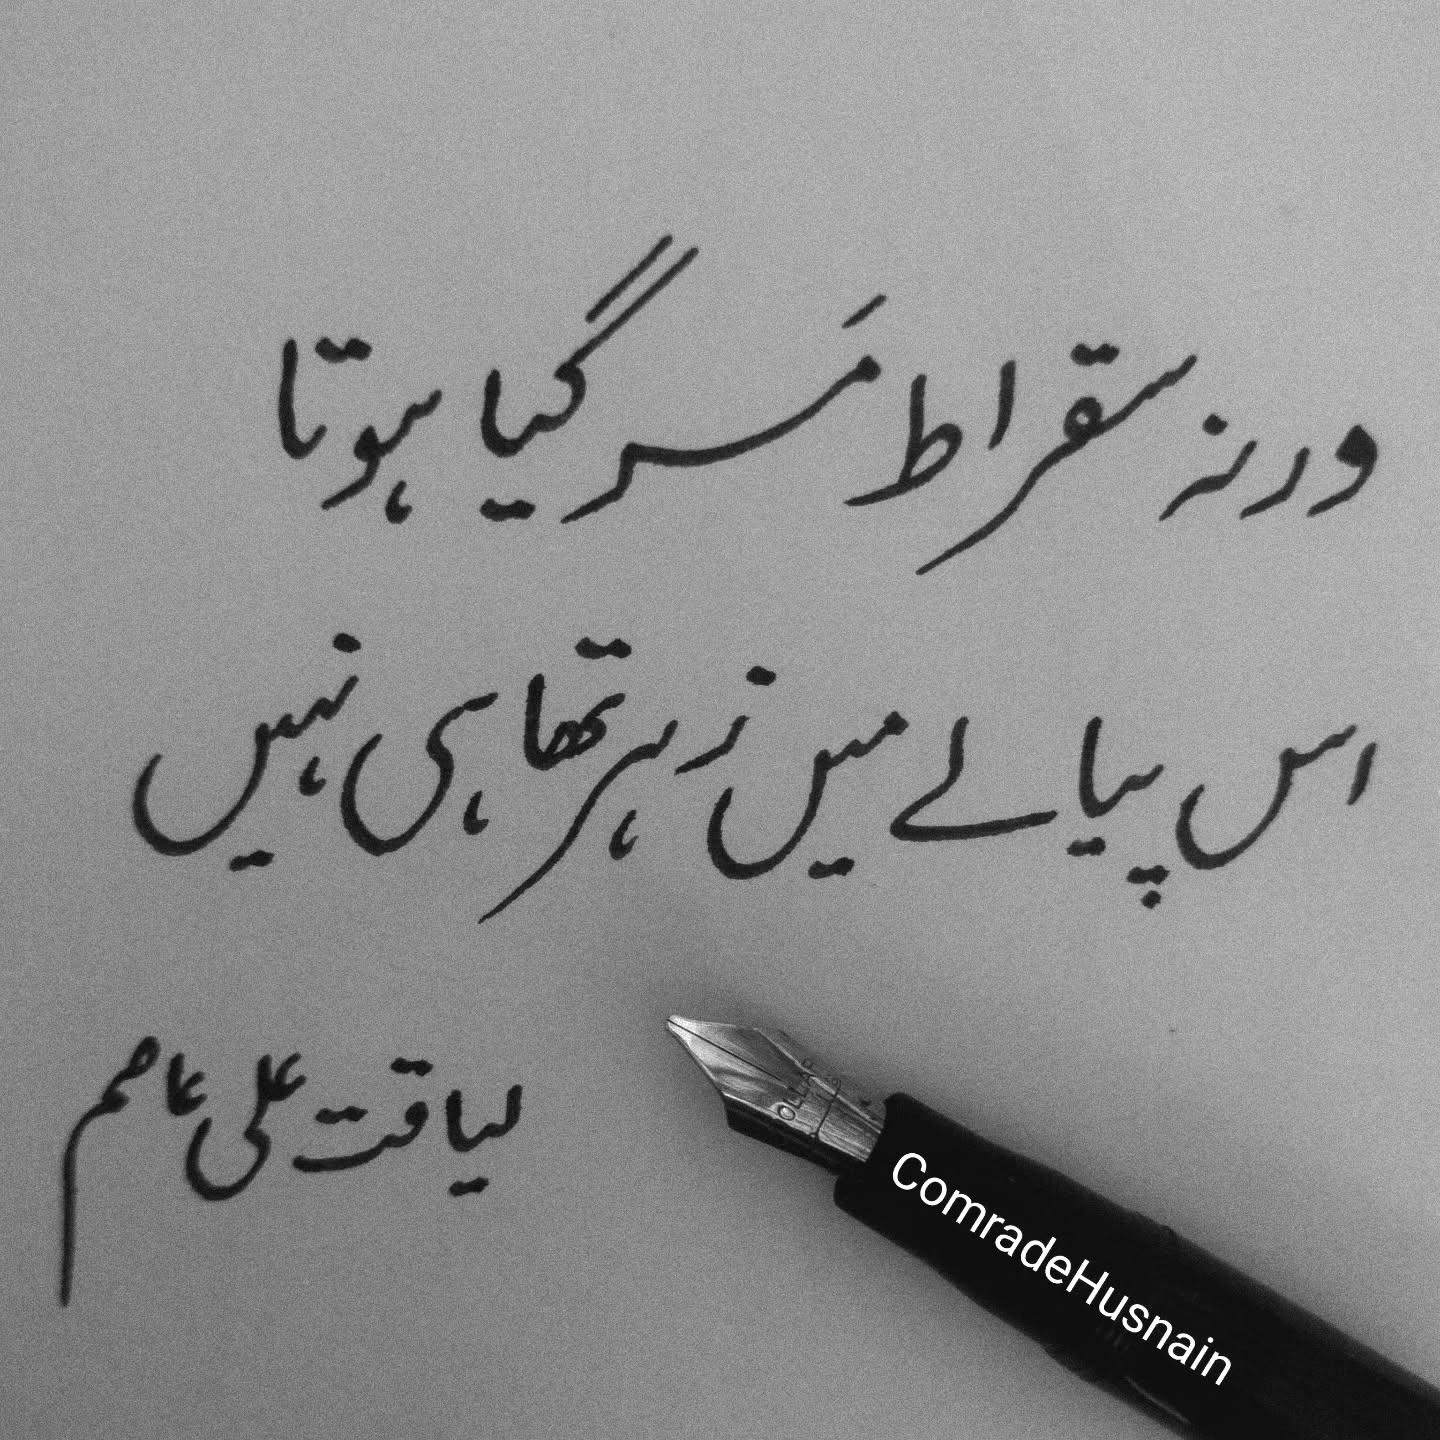 ورنہ سقراط مَر گیا ہوتا
اس پیالے میں زہر تھا ہی نہیں
لیاقت علی عاصم
ComradeHusnain